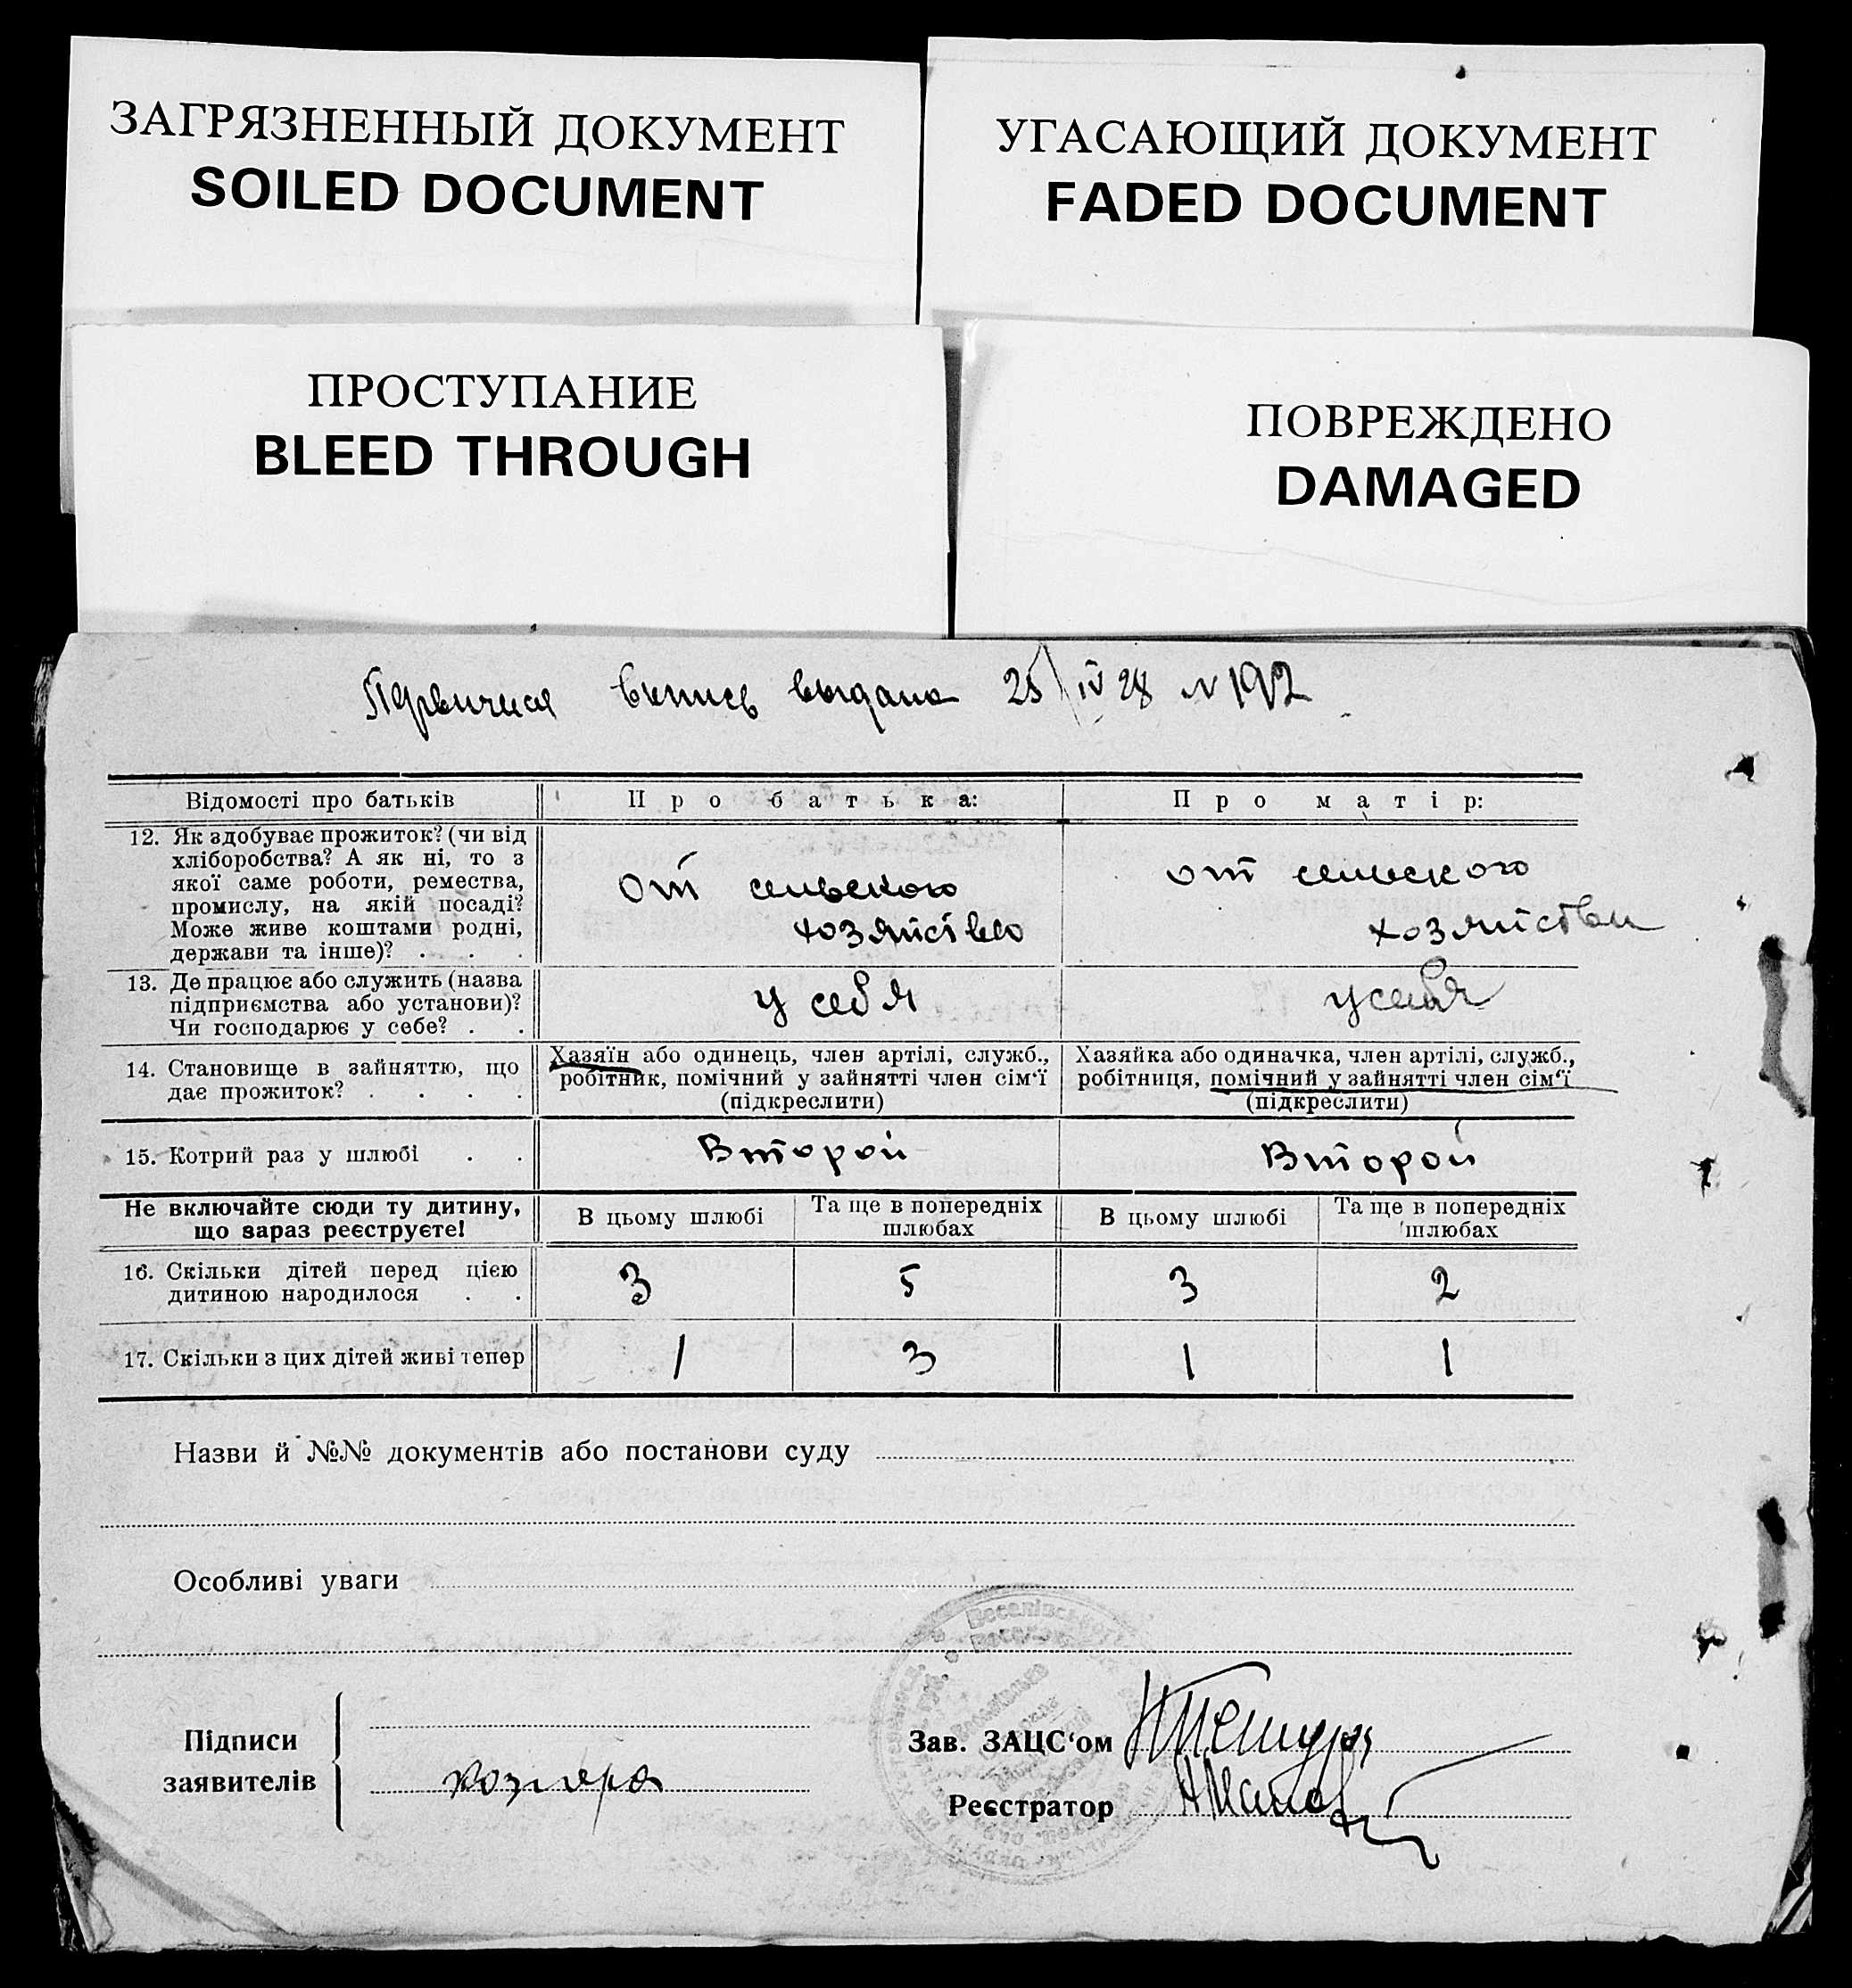 ЗАГРЯЗНЕННЫЙ ДОКУМЕНТ
SOILED DOCUMENT
УГАСАЮЩИЙ ДОКУМЕНТ
FADED DOCUMENT
ПРОСТУПАНИЕ
BLEED THROUGH
ПОВРЕЖДЕНО
DAMAGED
выпись выдана 25/IV 28 N 192
Відомості про батьків
Про батька:
Про матір:
12. Як здобуває прожиток? (чи від
хліборобства? А як ні, то з
якої саме роботи, ремества,
промислу, на якій посаді?
Може живе коштами родні,
держави та інше)? . . .
От сельского
хозяйство
от сельского
хозяйства
13. Де працює або служить (назва
підприємства або установи)?
Чи господарює у себе? . .
у себя
у себя
14. Становище в зайняттю, що
дає прожиток? . . . .
Хазяїн або одинець, член артілі, служб.,
робітник, помічний у зайнятті член сім'ї
(підкреслити)
Хазяйка або одиначка, член артілі, служб.,
робітниця, помічний у зайнятті член сім'ї
(підкреслити)
15. Котрий раз у шлюбі . .
Второй
Второй
Не включайте сюди ту дитину,
що зараз реєструєте!
В цьому шлюбі
Та ще в попередніх
шлюбах
В цьому шлюбі
Та ще в попередніх
шлюбах
16. Скільки дітей перед цією
дитиною народилося . .
3
5
3
2
17. Скільки з цих дітей живі тепер
1
3
1
1
Назви й №№ документів або постанови суду
Особливі уваги
Підписи
заявителів
Зав. ЗАЦС'ом
Реєстратор